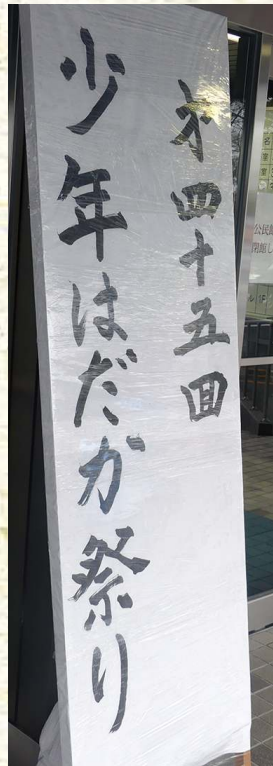 才四十五回
少年はだか祭り
公民館